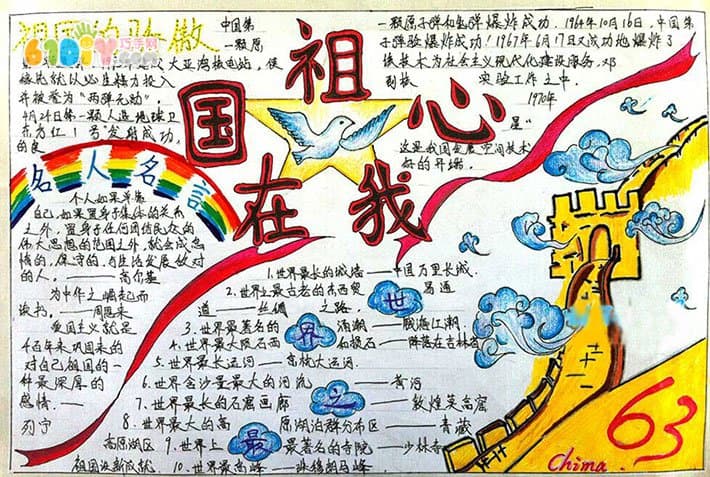 祖国的骄傲
巧手网
中国第
一颗原
大亚湾核电站,
稼先就以必生精力投入
并被誉为“两弹元勋”。
4月24日第一颗人造地球卫
东方红1号”发射成功,
的良
一颗原子弹和氢弹爆炸成功。1964年10月16日,中国朱
子弹验爆炸成功!1967年6月17日又成功地爆炸了
核技术为社会主义现代化建设服务,邓
到核 实验工作之中。
1970年
星“
这是我国发展空间技术
标的开端。
祖
国 心
在 我
名人名言
个人如果单靠
自己,如果置身于集体的关系
之外,置身于任何团结民众的
伟大思想的范围之外,就会成怠
惰的,保守的,与生活发展敌对
的人。——高尔基
为中华之崛起而
读书。——周恩来
爱国主义就是
千百年来巩固来的
对自己祖国的一
种最深厚的
感情。——
列宁
世界之最
1.世界最长的城墙——中国万里长城。
2.世界上最古老的东西贸易通
道——丝绸之路。
3.世界最著名的涌潮——钱塘江潮。
4.世界最大陨石西和损石——降落在吉林省
5.世界最长运河——京杭大运河。
6.世界含沙量最大的河流——黄河
7.世界最长的石窟画廊——敦煌莫高窟
8.世界最大的高原湖泊群分布区——青藏
高原湖区 9.世界上最著名的寺院——少林寺
祖国没新成就 10.世界最高峰——珠穆朗玛峰
63
Chima.